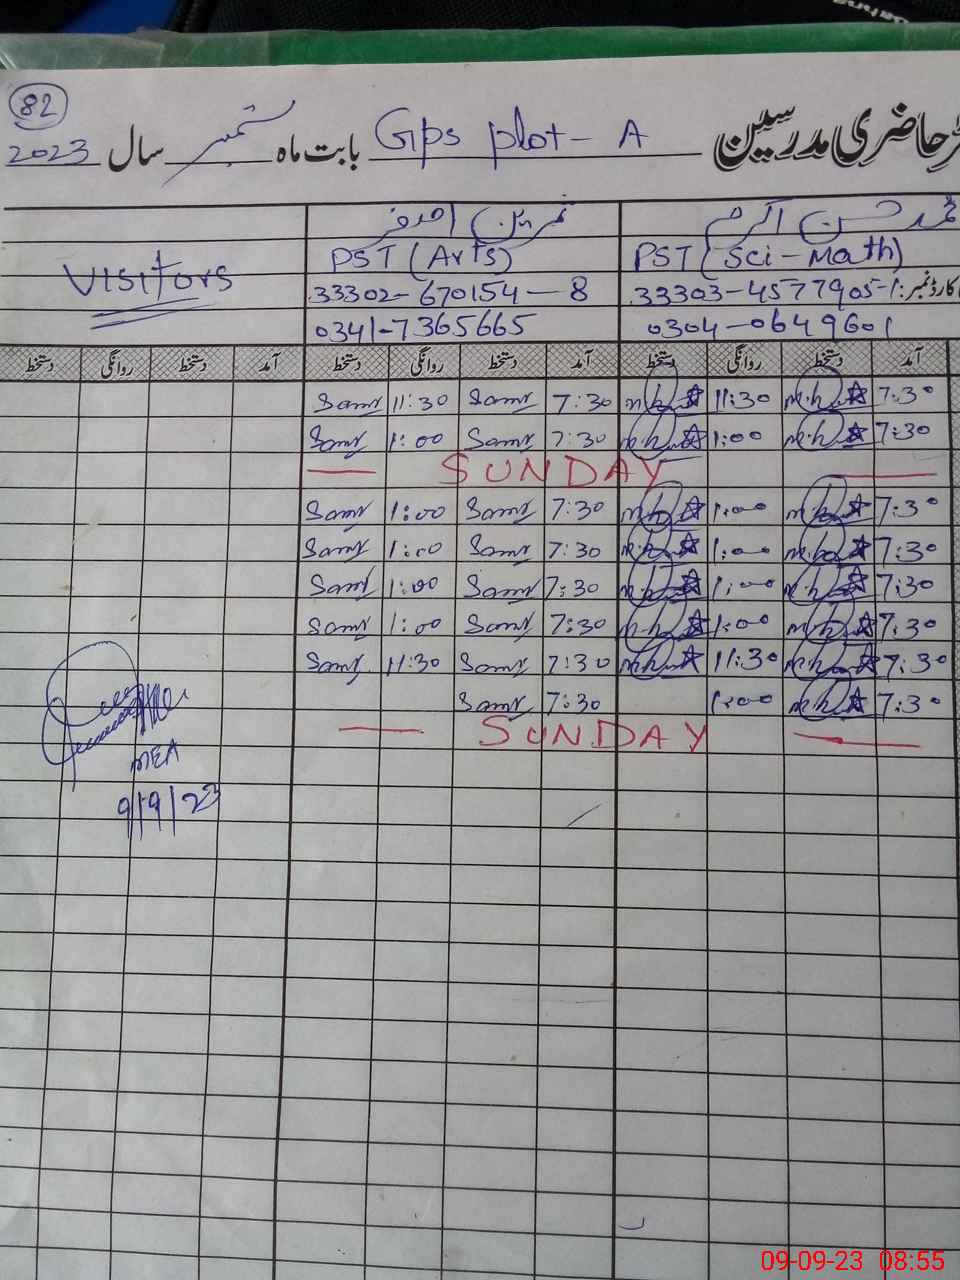 82
رجسٹر حاضری مدرسین Gps plot - A بابت ماہ ستمبر سال 2023
محمد حسن اکرم
PST (Sci - Math) PST (Arts) VISITORS
کارڈ نمبر: 33303-4577905-1 33302-670154-8
0304-0649601 0341-7365665
آمد دستخط روانگی دستخط آمد دستخط روانگی دستخط آمد دستخط روانگی دستخط
7:30 11:30 7:30 Samr 11:30 Samr
7:30 1:00 7:30 Samr 1:00 Samr
SUNDAY
7:30 1:00 7:30 Samr 1:00 Samr
7:30 1:00 7:30 Samr 1:00 Samr
7:30 1:00 7:30 Samr 1:00 Samr
7:30 1:00 7:30 Samr 1:00 Samr
7:30 11:30 7:30 Samr 11:30 Samr
7:30 1:00 7:30 Samr
SUNDAY
MEA
9/9/23
09-09-23 08:55